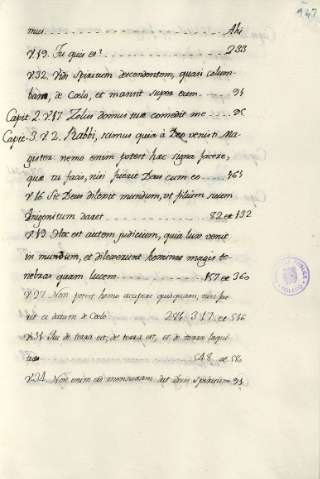 147
mus Ahi
V.19. Tu quis es? 233
V.32. Vidi Spiritum descendentem, quasi colum-
bam, de Coelo, et mansit super eum 91
Capit. 2. V.17. Zelus domus tuae comedit me
Capit. 3. V.2. Rabbi, scimus quia à Deo venisti Ma-
gister nemo enim potest haec signa facere,
quae tu facis, nisi fuerit Deus cum eo 463
V.16 Sic Deus dilexit mundum, ut filium suum
Unigenitum daret 82 et 132
V.19. Hoc est autem judicium, quia lux venit
in mundum, et dilexerunt homines magis te-
nebras quam lucem 157 et 360
V.27. Non potest homo accipere quidquam, nisi fue-
rit ei datum de Coelo 244. 317. et 546
V.31. Qui de terra est, de terra est, et de terra loqui-
tur 548. et 50
V.34. Non enim ad mensuram dat Deus spiritum 91